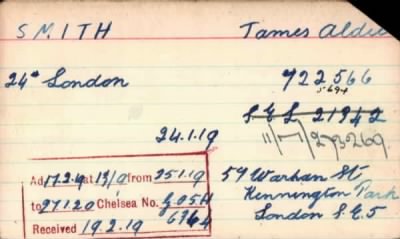 SMITH James Aldie
24th London 722566
5694
S.E.L. 21942
24.1.19 11/M/273269
Ad 17.2.19 at 13/9 from 25.1.19 59 Warham St
to 27.1.20 Chelsea No. Kennington Park
Received 19.2.19 London S.E.5